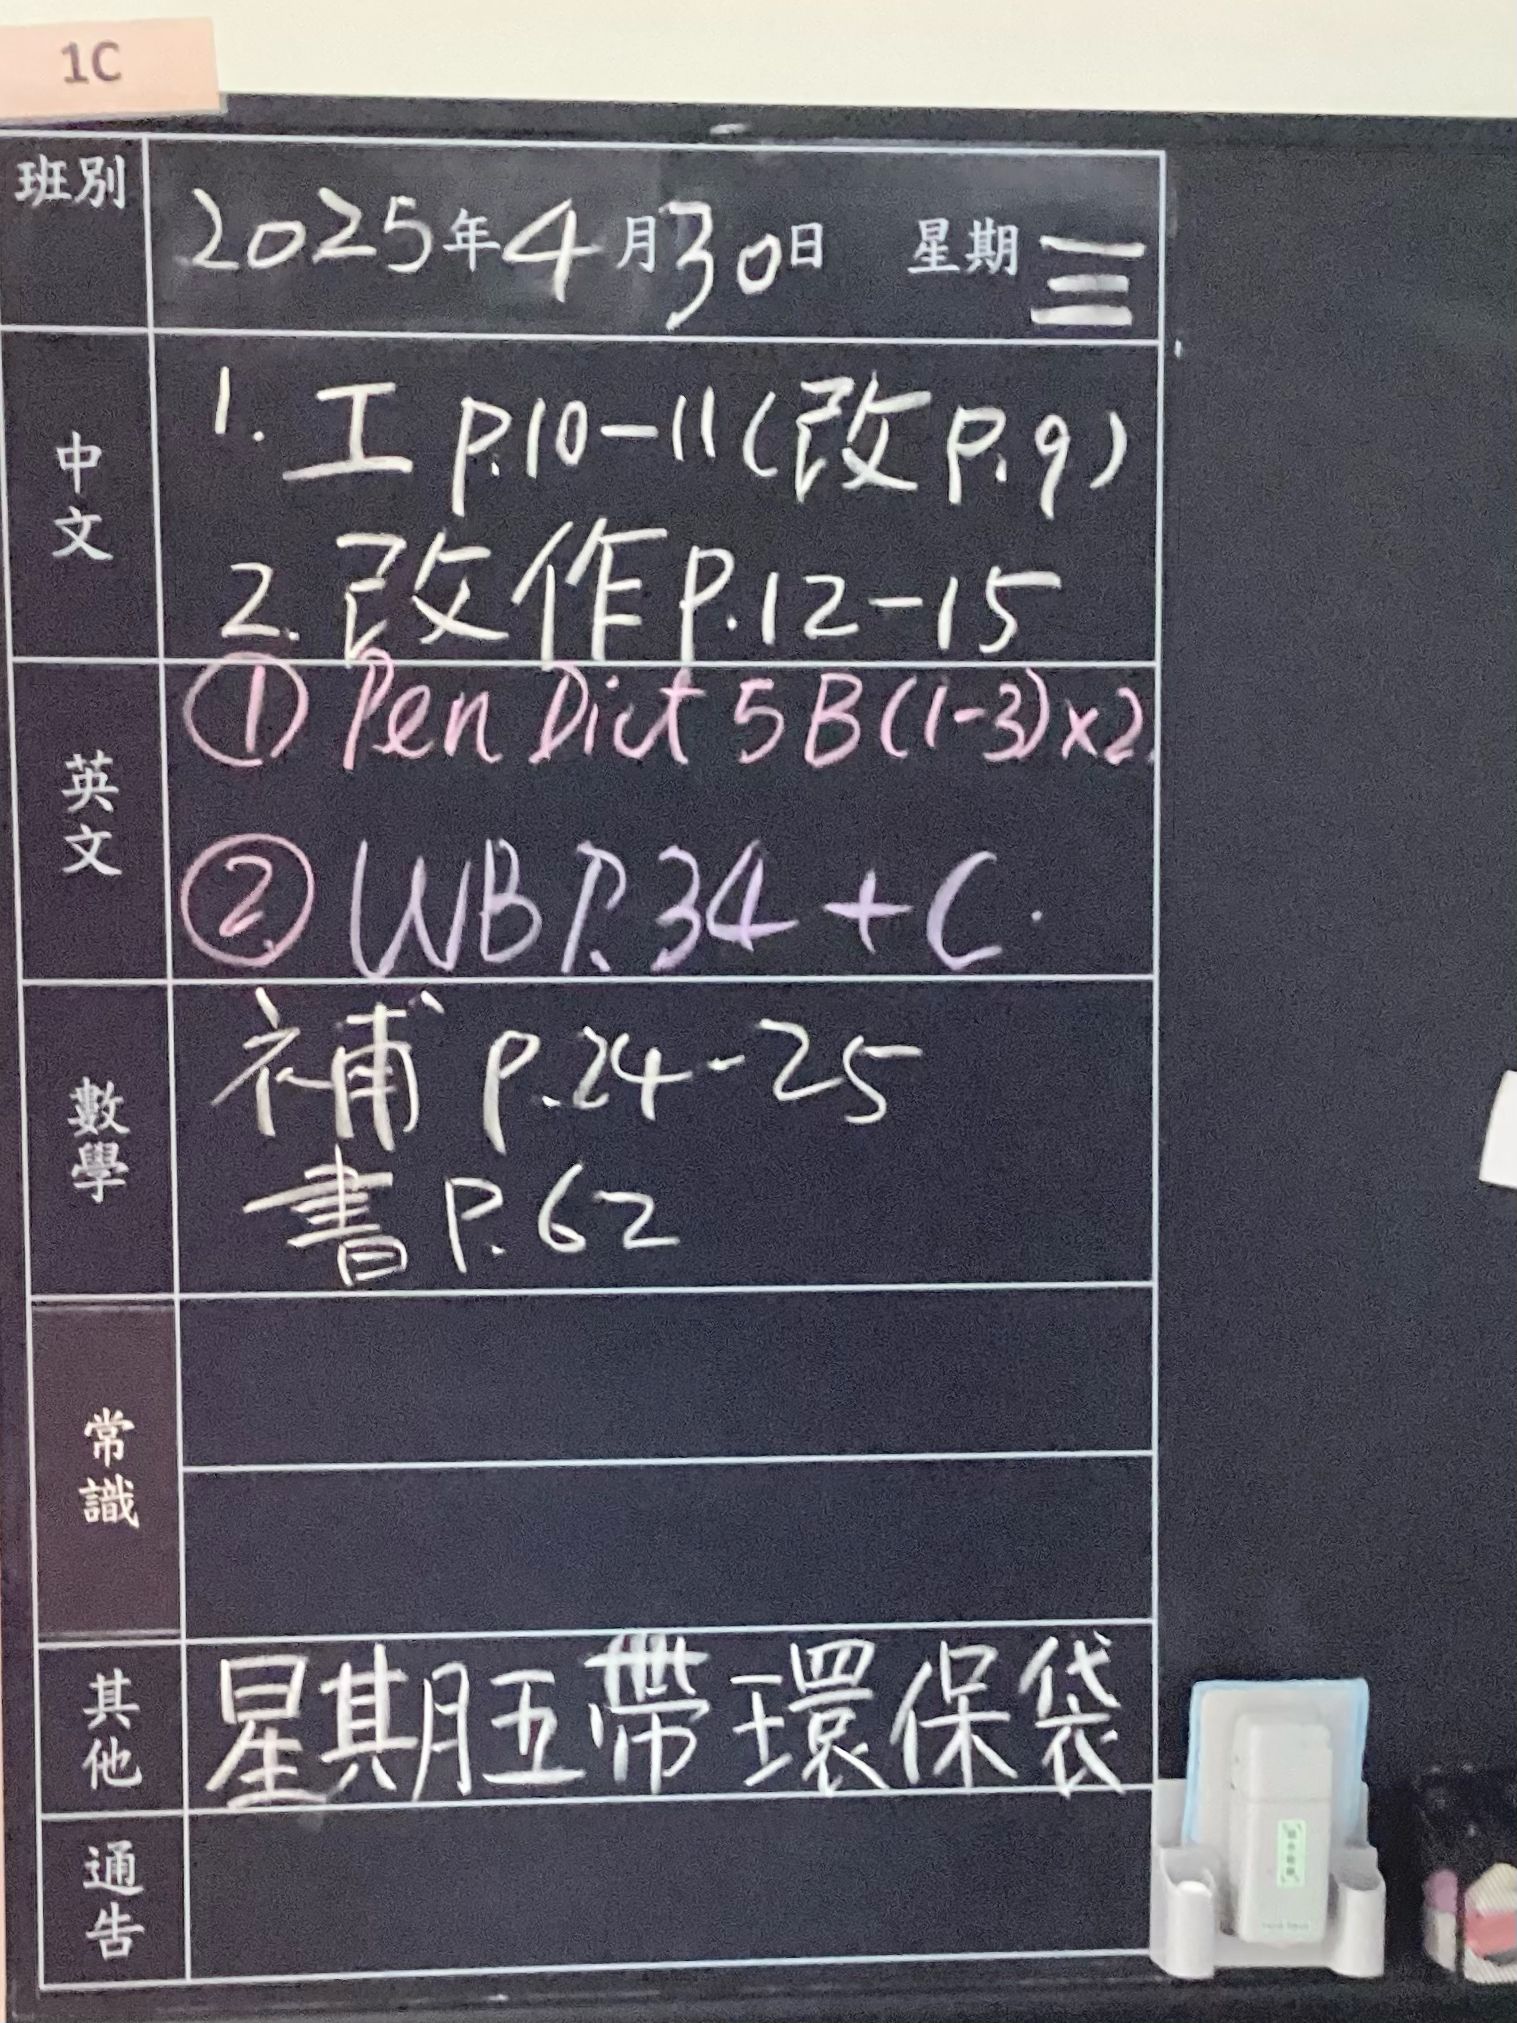 1C
班別
2025年4月30日 星期三
中文
1. 工 p.10-11(改 p.9)
2. 改作 p.12-15
英文
① Pen Dict 5B(1-3)x2.
② WB P.34 + C.
數學
補 p.24-25
書 P.62
常識
其他
星期五帶環保袋
通告